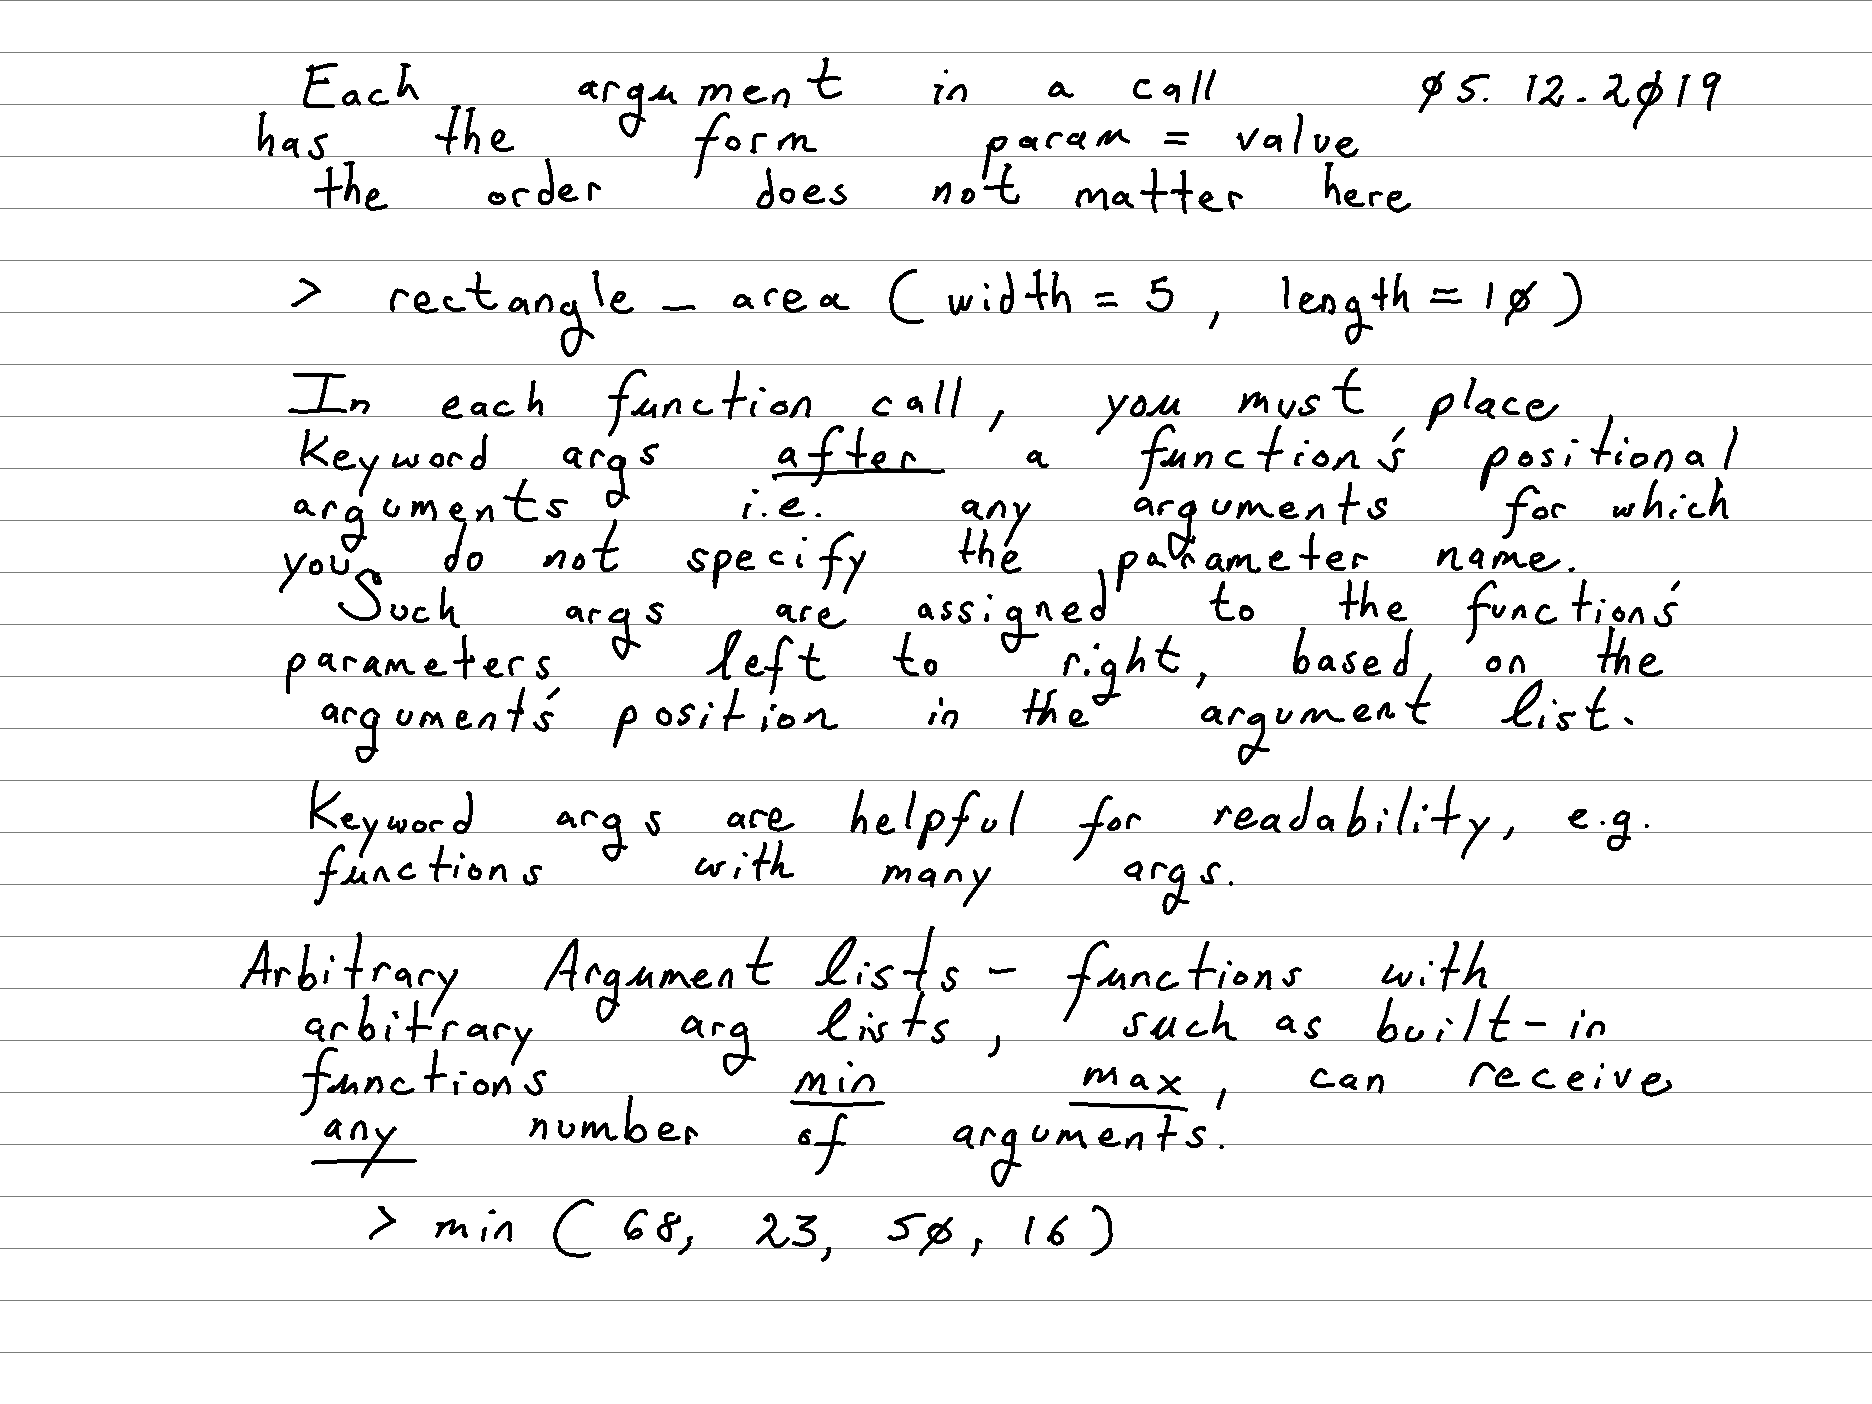 Each argument in a call 05.12.2019
has the form param = value
the order does not matter here
> rectangle_area (width = 5, length = 10)
In each function call, you must place
keyword args after a function's positional
arguments i.e. any arguments for which
you do not specify the parameter name.
Such args are assigned to the function's
parameters left to right, based on the
argument's position in the argument list.
Keyword args are helpful for readability, e.g.
functions with many args.
Arbitrary Argument lists - functions with
arbitrary arg lists, such as built-in
functions min max, can receive
any number of arguments.
> min (68, 23, 50, 16)